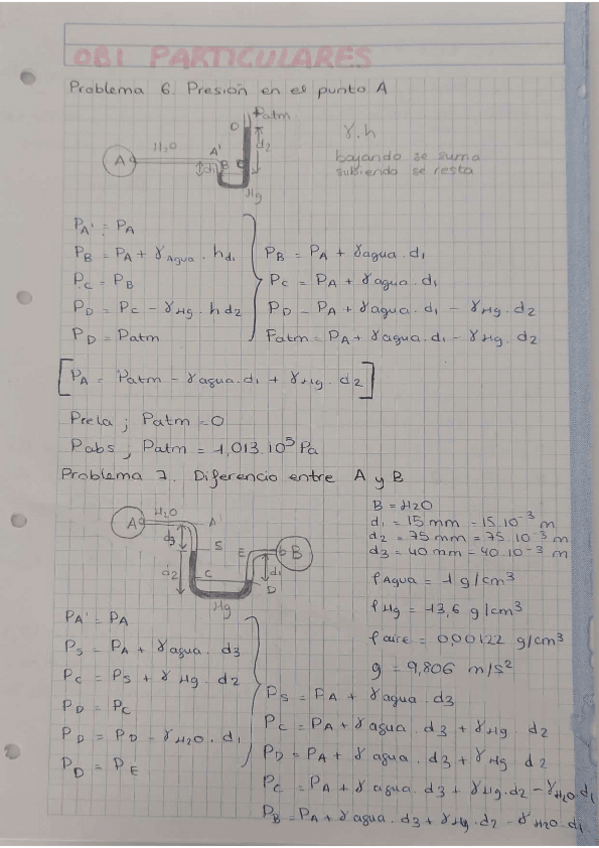 OBI PARTICULARES
Problema 6. Presión en el punto A
Patm
D
H2O
A'
d2
A
d1
B
C
Hg
γ.h
bajando se suma
subiendo se resta
PA' = PA
PB = PA + γAgua . hd1
PC = PB
PD = PC - γHg . hd2
PD = Patm
PB = PA + γagua . d1
PC = PA + γagua . d1
PD = PA + γagua . d1 - γHg . d2
Patm = PA + γagua . d1 - γHg . d2
[PA = Patm - γagua.d1 + γHg . d2]
Prela ; Patm = 0
Pabs ; Patm = 1,013.10^5 Pa
Problema 7. Diferencio entre A y B
H2O
A
A'
d3
S
E
B
d2
C
d1
D
Hg
B = H2O
d1 = 15 mm = 15.10^-3 m
d2 = 75 mm = 75.10^-3 m
d3 = 40 mm = 40.10^-3 m
ρAgua = 1 g/cm3
ρHg = 13,6 g/cm3
ρaire = 0,00122 g/cm3
g = 9,806 m/s2
PA' = PA
PS = PA + γagua . d3
PC = PS + γHg . d2
PD = PC
PD = PD - γH2O . d1
PD = PE
PS = PA + γagua . d3
PC = PA + γagua . d3 + γHg . d2
PD = PA + γagua . d3 + γHg d2
PC = PA + γagua . d3 + γHg . d2 - γH2O . d1
PB = PA + γagua . d3 + γHg . d2 - γH2O . d1